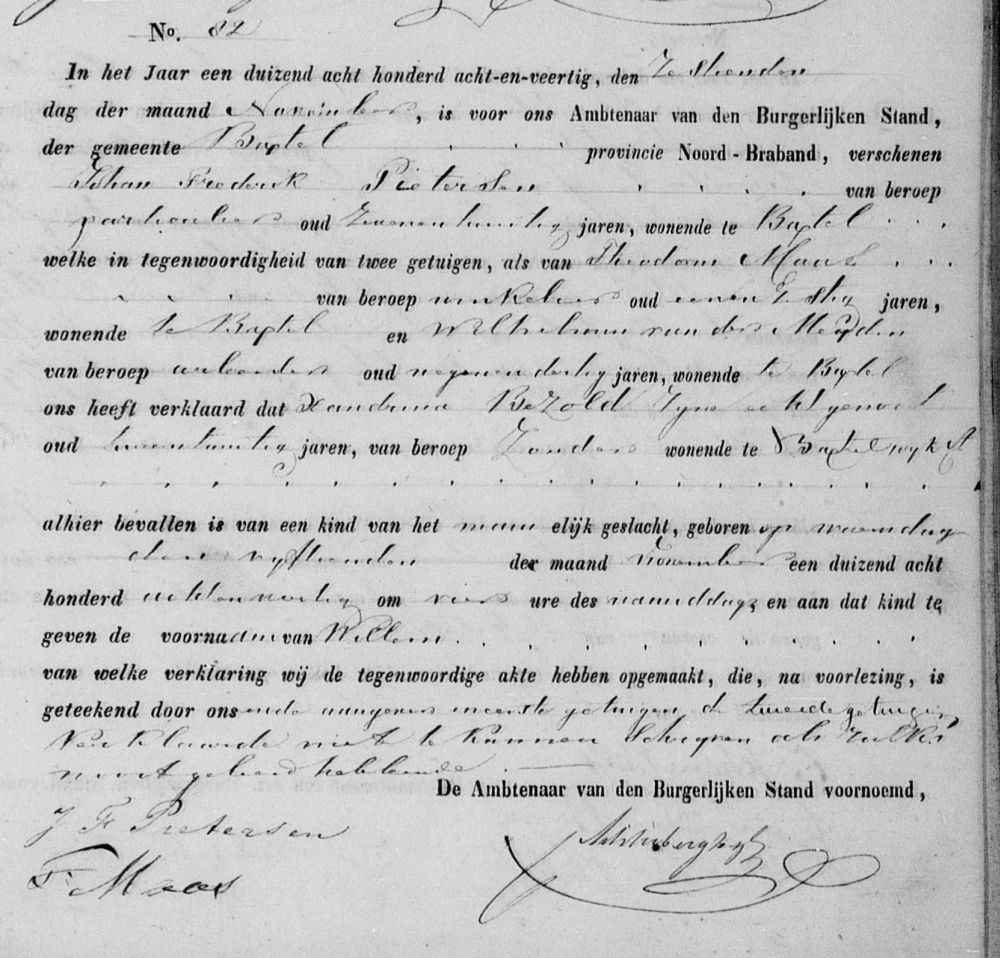 No. 82
In het Jaar een duizend acht honderd acht-en-veertig, den Zestienden
dag der maand November, is voor ons Ambtenaar van den Burgerlijken Stand,
der gemeente Boxtel . . . . provincie Noord-Braband, verschenen
Johan Frederik Pietersen . . . . . van beroep
particulier oud zevenentwintig jaren, wonende te Boxtel . . .
welke in tegenwoordigheid van twee getuigen, als van Theodorus Maas . . .
. . . . van beroep winkelier oud eenenzestig jaren,
wonende te Boxtel en Wilhelmus van der Meyden
van beroep arbeider oud negenendertig jaren, wonende te Boxtel
ons heeft verklaard dat Bezold zyne echtgenoot
oud jaren, van beroep Zonder wonende te Boxtel wyk A
alhier bevallen is van een kind van het mannelijk geslacht, geboren op woensdag
den vyftienden der maand November een duizend acht
honderd achtenveertig om vier ure des namiddags en aan dat kind te
geven de voornaam van Willem . . . . . .
van welke verklaring wij de tegenwoordige akte hebben opgemaakt, die, na voorlezing, is
geteekend door ons en de aangever en eerste getuigen de tweede getuigen
Verklaarde niet te kunnen Schryven als zulks
nooit geleerd hebbende. —
De Ambtenaar van den Burgerlijken Stand voornoemd,
J F Pietersen
T: Maas